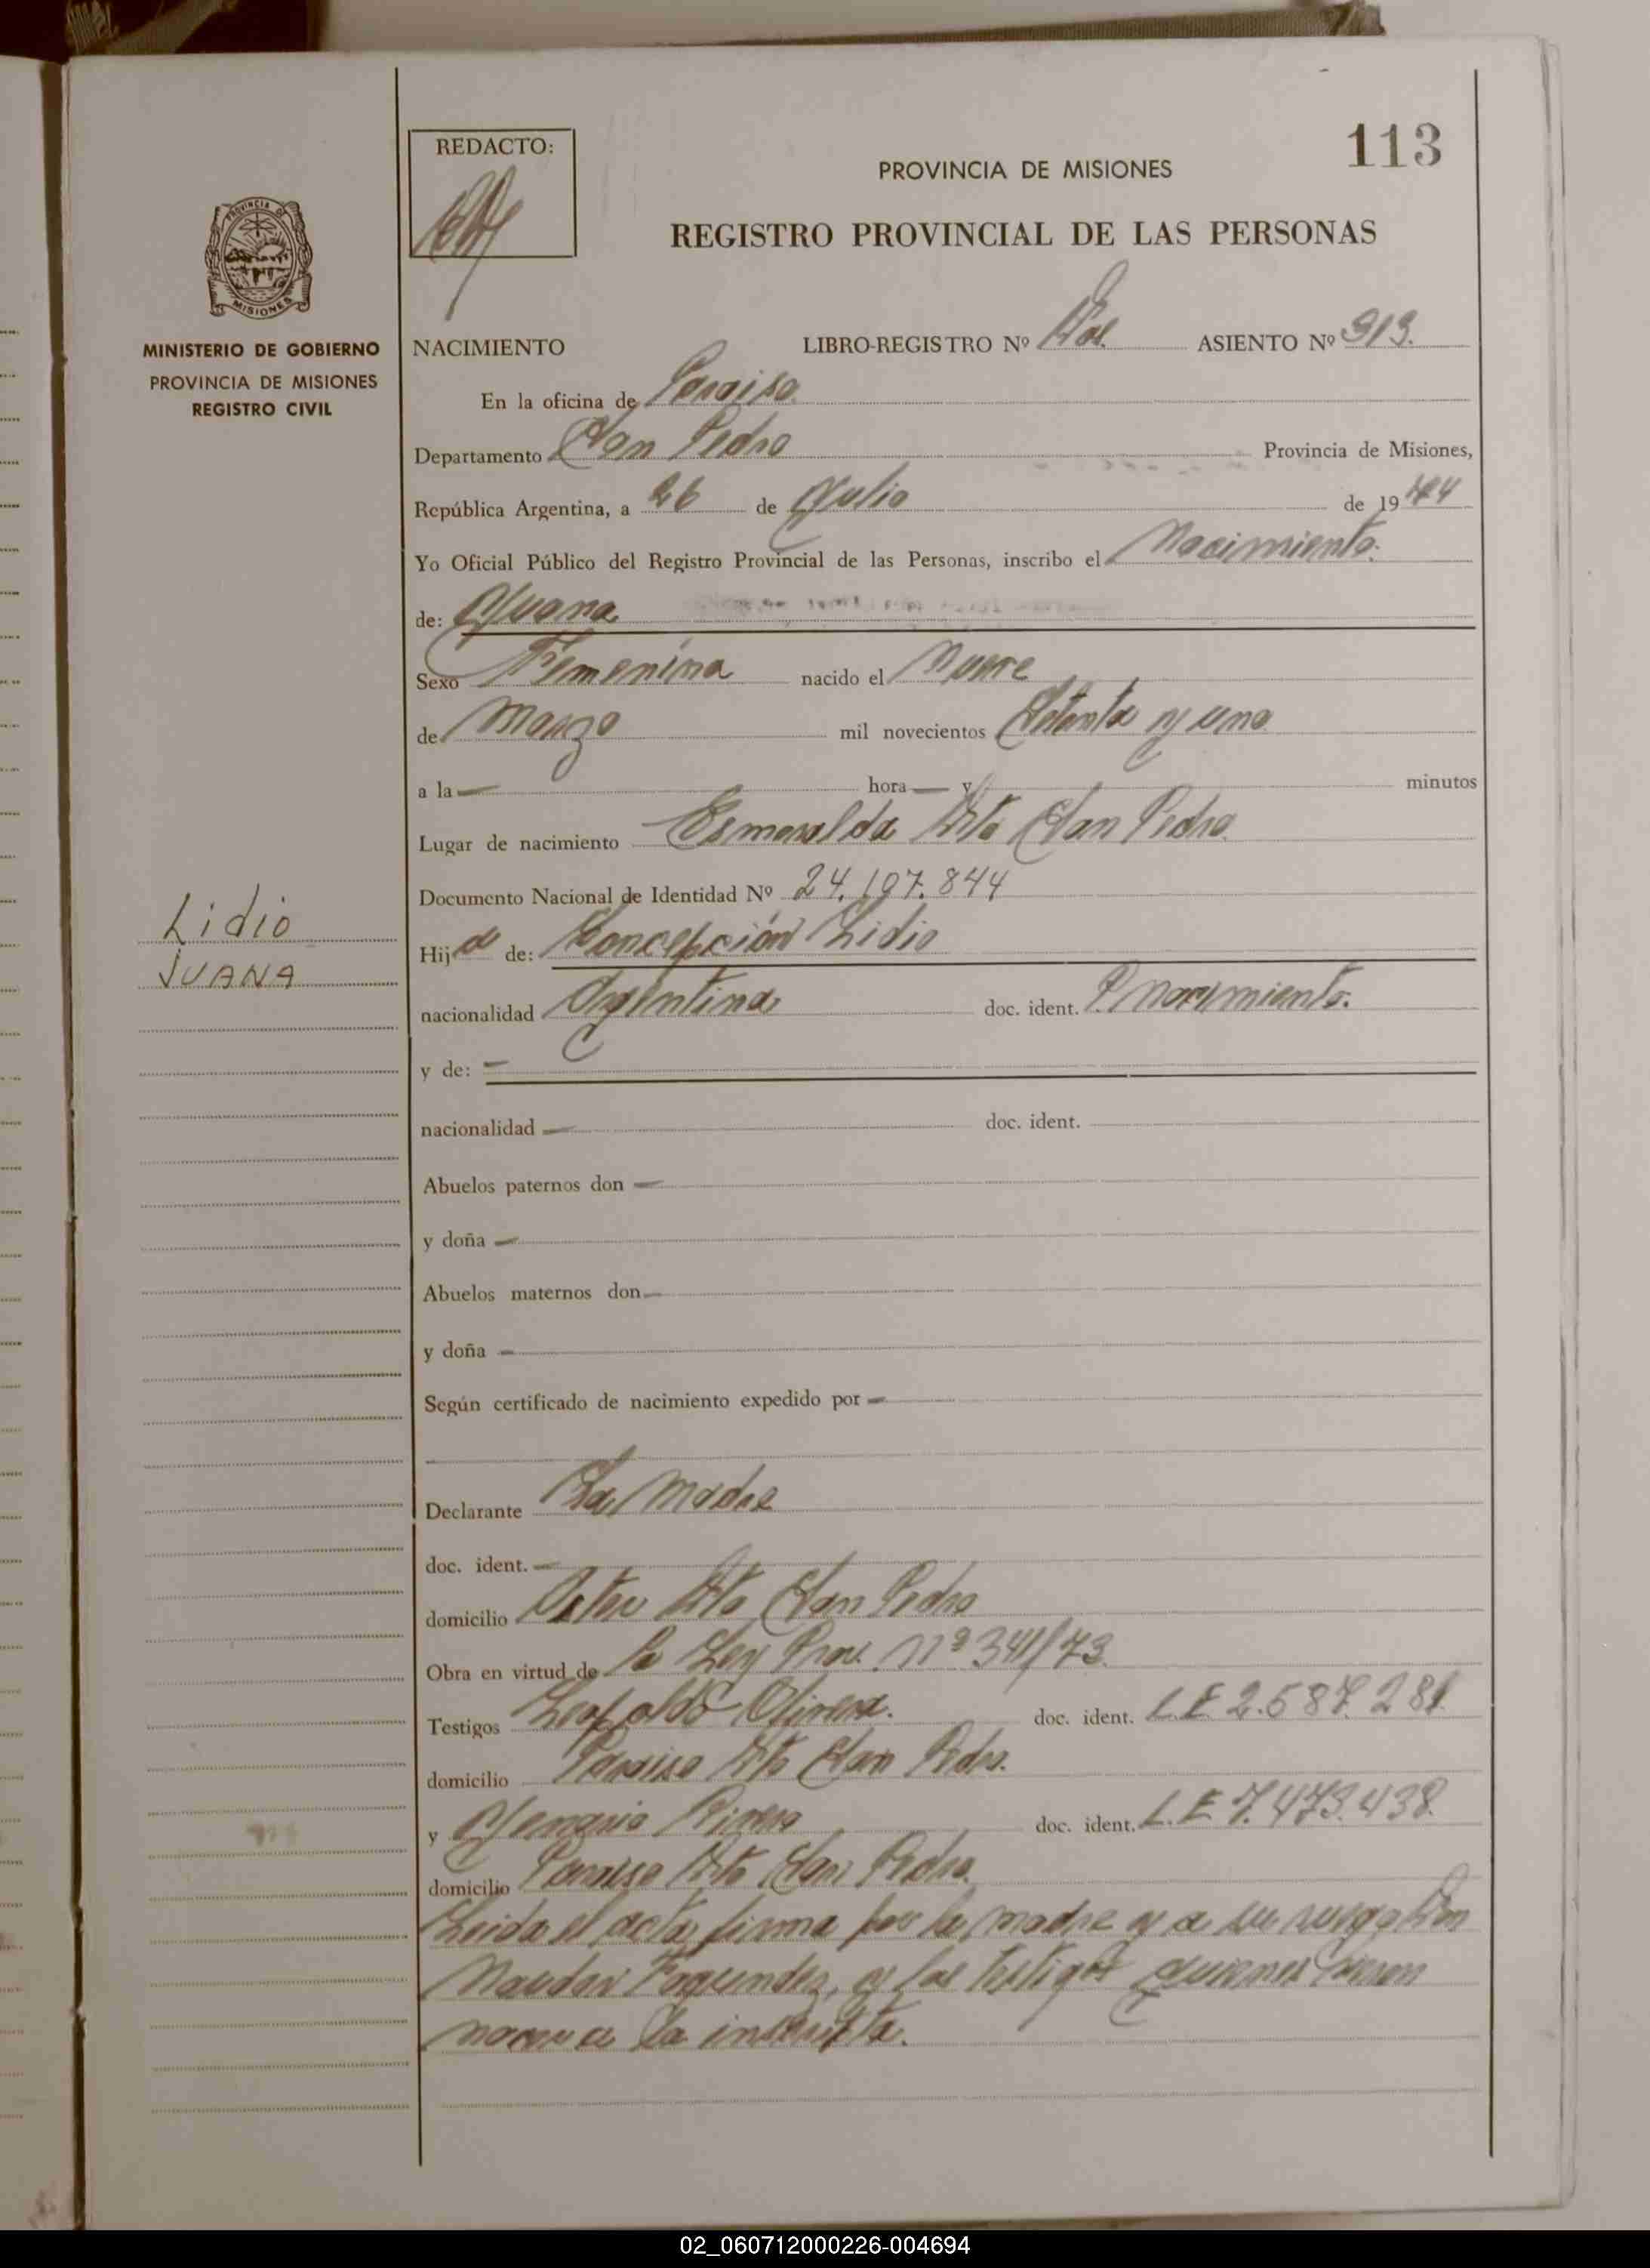 113
REDACTO:
PROVINCIA DE MISIONES
REGISTRO PROVINCIAL DE LAS PERSONAS
MINISTERIO DE GOBIERNO
PROVINCIA DE MISIONES
REGISTRO CIVIL
NACIMIENTO LIBRO-REGISTRO Nº Dos. ASIENTO Nº 313.
En la oficina de Paraiso.
Departamento San Pedro Provincia de Misiones,
República Argentina, a 26 de Julio de 19
Yo Oficial Público del Registro Provincial de las Personas, inscribo el Nacimiento.
de: Juana
Sexo Femenina nacido el Nueve
de Marzo mil novecientos Setenta y uno
a la — hora — y minutos
Lugar de nacimiento Esmeralda Dto San Pedro.
Documento Nacional de Identidad Nº 24.197.844
Lidio
JUANA
Hija de: Concepción Lidio
nacionalidad Argentina doc. ident. P. nacimiento.
y de: —
nacionalidad — doc. ident.
Abuelos paternos don —
y doña —
Abuelos maternos don —
y doña —
Según certificado de nacimiento expedido por —
Declarante La Madre
doc. ident. —
domicilio Dto San Pedro
Obra en virtud de la Ley Prov. Nº 341/73.
Testigos Leopoldo Olivera. doc. ident. L.E 2.587.281
domicilio Paraiso Dto San Pedro.
y Rivero doc. ident. L.E 7.473.438.
domicilio Paraiso Dto San Pedro.
Leida el acta, firma por la madre y a su ruego
Fagundez, y los testigos quienes vieron
nacer a la inscripta.
02_060712000226-004694